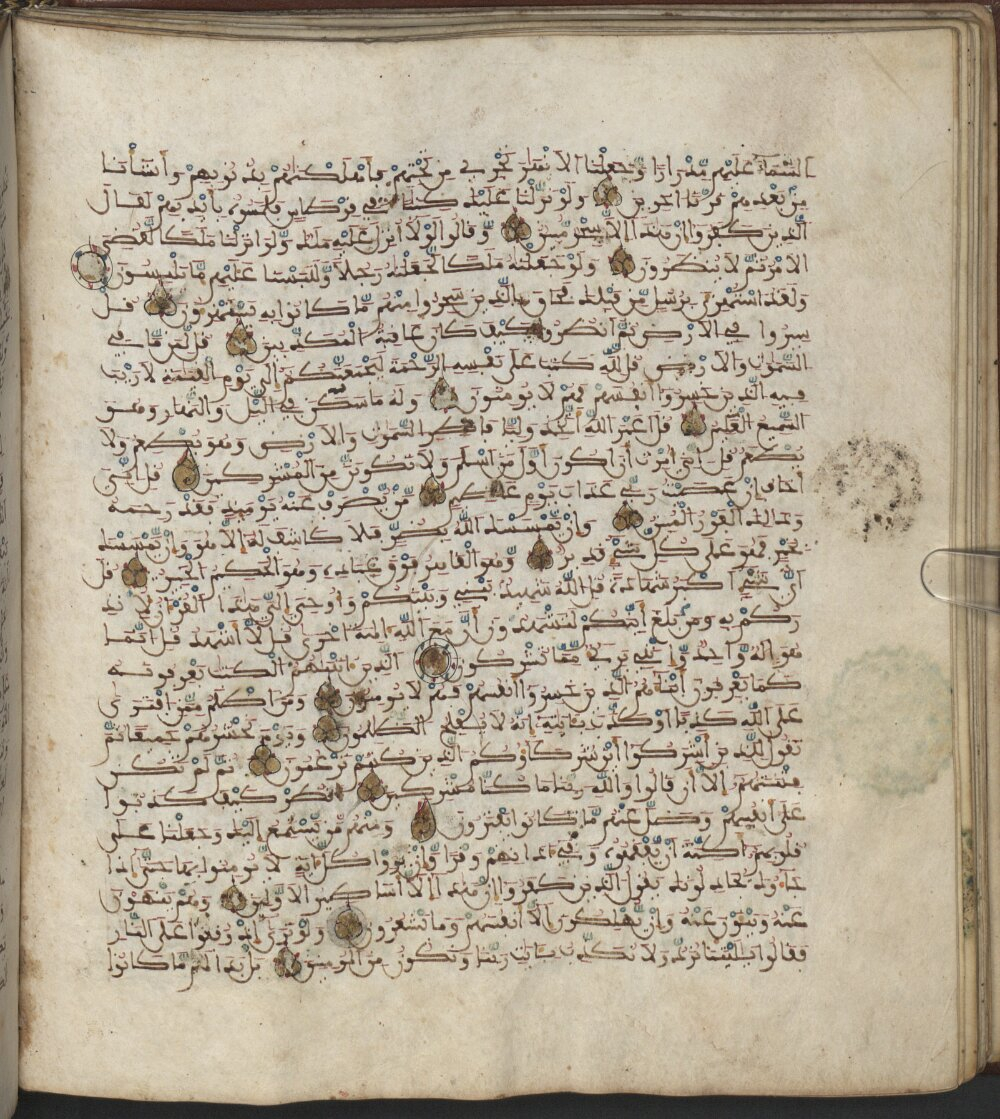 السماء عليهم مدرارا وجعلنا الانهر تجري من تحتهم فاهلكنهم بذنوبهم وانشانا
من بعدهم قرنا اخرين ولو نزلنا عليك كتبا في قرطاس فلمسوه بايديهم لقال
الذين كفروا ان هذا الا سحر مبين وقالوا لولا انزل عليه ملك ولو انزلنا ملكا لقضي
الامر ثم لا ينظرون ولو جعلنه ملكا لجعلنه رجلا وللبسنا عليهم ما يلبسون
ولقد استهزئ برسل من قبلك فحاق بالذين سخروا منهم ما كانوا به يستهزءون قل
سيروا في الارض ثم انظروا كيف كان عاقبة المكذبين قل لمن ما في
السموت والارض قل لله كتب على نفسه الرحمة ليجمعنكم الى يوم القيمة لا ريب
فيه الذين خسروا انفسهم فهم لا يومنون وله ما سكن في اليل والنهار وهو
السميع العليم قل اغير الله اتخذ وليا فاطر السموت والارض وهو يطعم ولا
يطعم قل اني امرت ان اكون اول من اسلم ولا تكونن من المشركين قل اني
اخاف ان عصيت ربي عذاب يوم عظيم من يصرف عنه يومئذ فقد رحمه
وذلك الفوز المبين وان يمسسك الله بضر فلا كاشف له الا هو وان يمسسك
بخير فهو على كل شيء قدير وهو القاهر فوق عباده وهو الحكيم الخبير قل
اي شيء اكبر شهادة قل الله شهيد بيني وبينكم واوحي الي هذا القران لانذ
ركم به ومن بلغ ائنكم لتشهدون ان مع الله الهة اخرى قل لا اشهد قل انما
هو اله واحد وانني بريء مما تشركون الذين اتينهم الكتب يعرفونه
كما يعرفون ابناءهم الذين خسروا انفسهم فهم لا يومنون ومن اظلم ممن افترى
على الله كذبا او كذب بايته انه لا يفلح الظلمون ويوم نحشرهم جميعا ثم
نقول للذين اشركوا اين شركاؤكم الذين كنتم تزعمون ثم لم تكن
فتنتهم الا ان قالوا والله ربنا ما كنا مشركين انظر كيف كذبوا
على انفسهم وضل عنهم ما كانوا يفترون ومنهم من يستمع اليك وجعلنا على
قلوبهم اكنة ان يفقهوه وفي اذانهم وقرا وان يروا كل اية لا يومنوا بها حتى اذا
جاءوك يجدلونك يقول الذين كفروا ان هذا الا اسطير الاولين وهم ينهون
عنه وينون عنه وان يهلكون الا انفسهم وما يشعرون ولو ترى اذ وقفوا على النار
فقالوا يليتنا نرد ولا نكذب بايت ربنا ونكون من المومنين بل بدا لهم ما كانوا